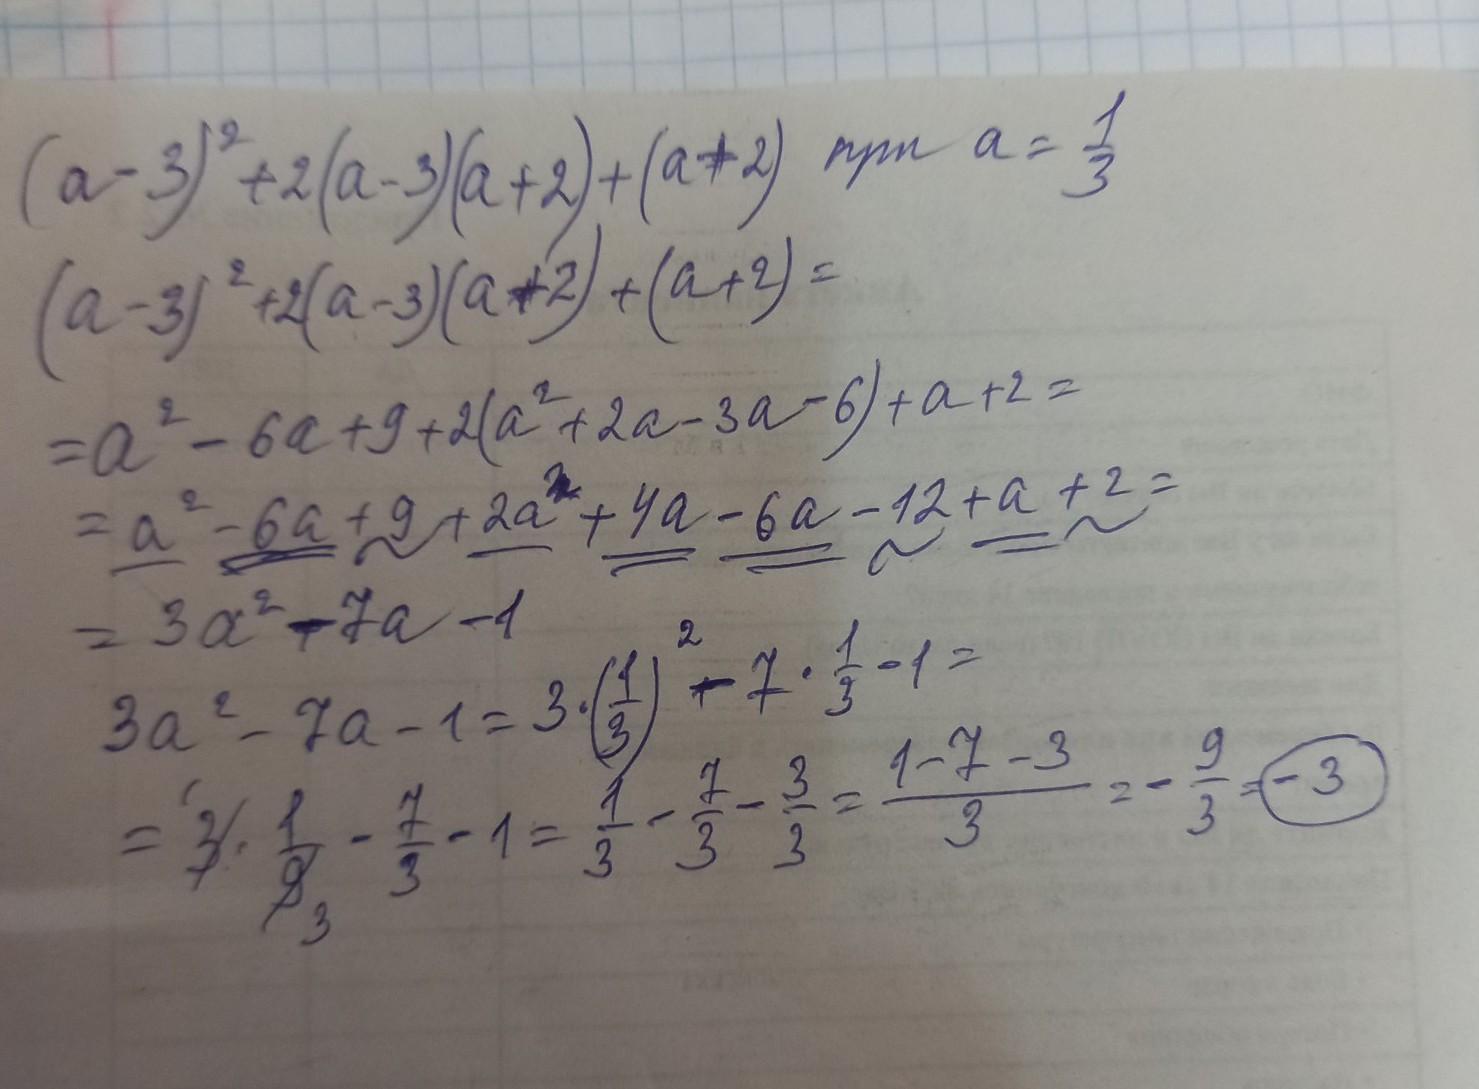 (a-3)² + 2(a-3)(a+2) + (a+2) при a = 1/3
(a-3)² + 2(a-3)(a+2) + (a+2) =
= a² - 6a + 9 + 2(a² + 2a - 3a - 6) + a + 2 =
= a² - 6a + 9 + 2a² + 4a - 6a - 12 + a + 2 =
= 3a² - 7a - 1
3a² - 7a - 1 = 3 · (1/3)² - 7 · 1/3 - 1 =
= 3 · 1/9 - 7/3 - 1 = 1/3 - 7/3 - 3/3 = (1 - 7 - 3)/3 = - 9/3 = -3